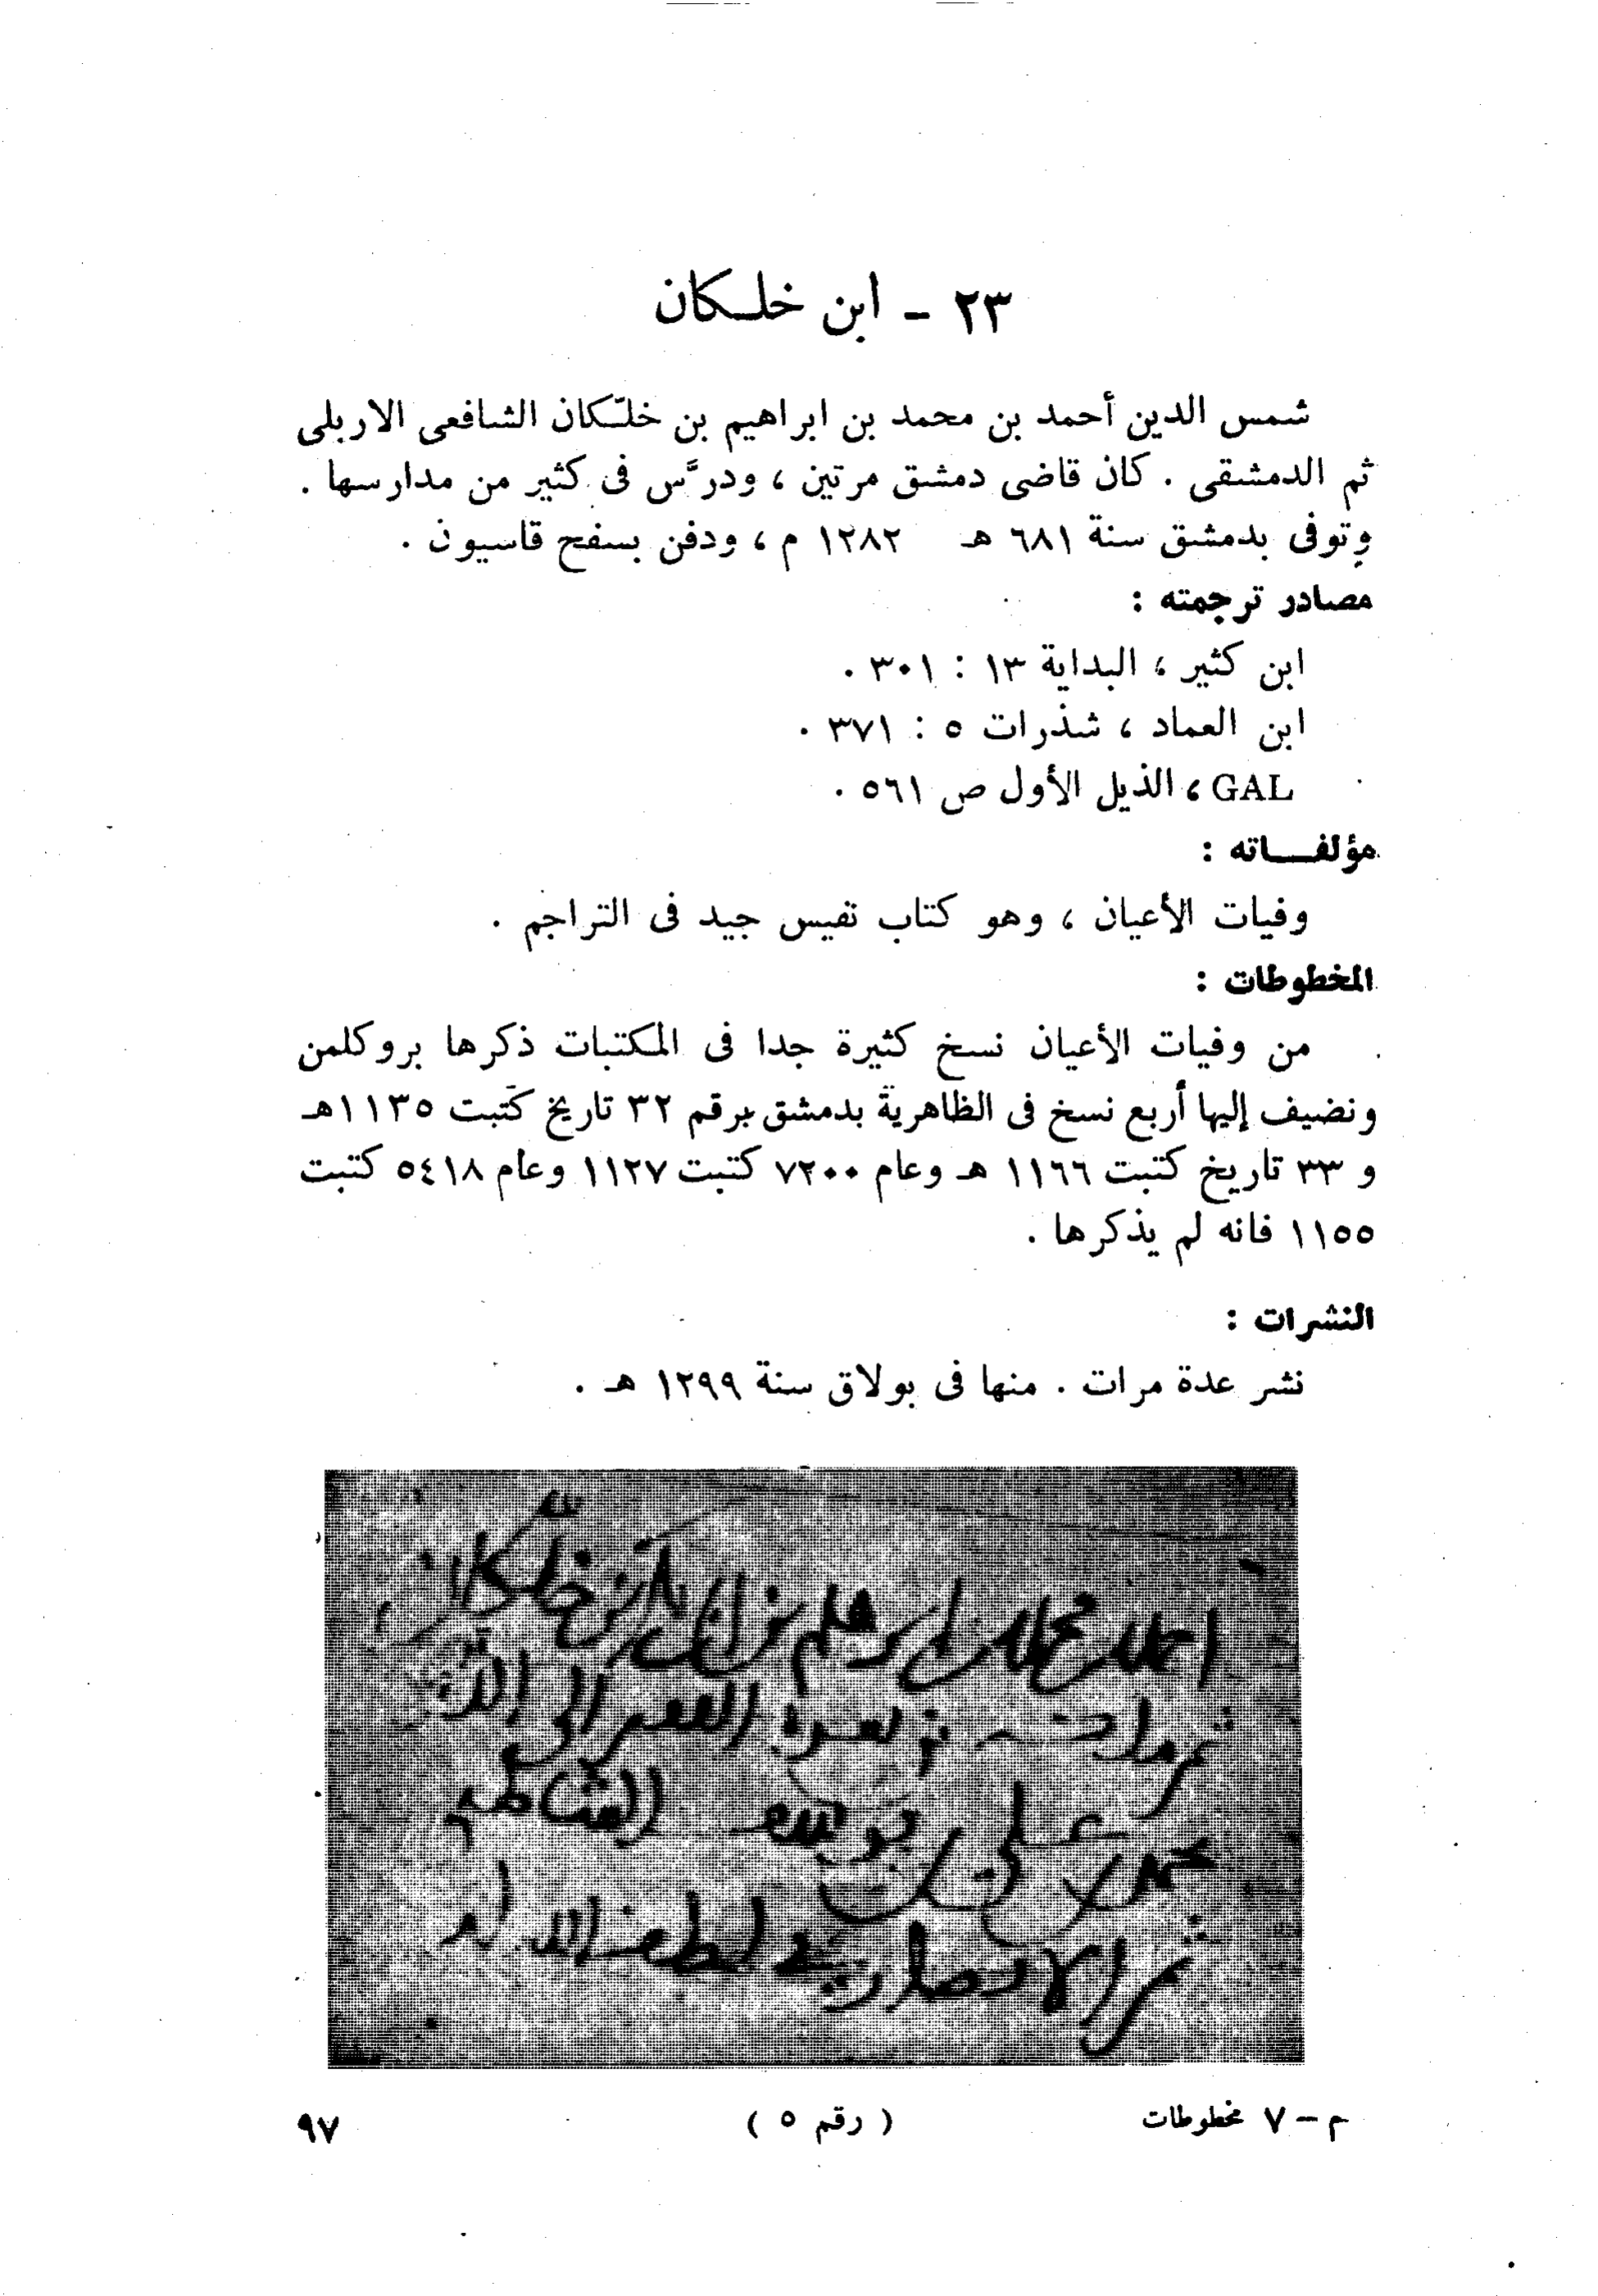 ٢٣ - ابن خلكان
شمس الدين أحمد بن محمد بن ابراهيم بن خلّكان الشافعى الاربلى
ثم الدمشقى . كان قاضى دمشق مرتين ، ودرَّس فى كثير من مدارسها .
وتوفى بدمشق سنة ٦٨١ هـ ١٢٨٢ م ، ودفن بسفح قاسيون .
مصادر ترجمته :
ابن كثير ، البداية ١٣ : ٣٠١ .
ابن العماد ، شذرات ٥ : ٣٧١ .
GAL ، الذيل الأول ص ٥٦١ .
مؤلفــاته :
وفيات الأعيان ، وهو كتاب نفيس جيد فى التراجم .
المخطوطات :
من وفيات الأعيان نسخ كثيرة جدا فى المكتبات ذكرها بروكلمن
ونضيف إليها أربع نسخ فى الظاهرية بدمشق برقم ٣٢ تاريخ كتبت ١١٣٥هـ
و ٣٣ تاريخ كتبت ١١٦٦ هـ وعام ٧٢٠٠ كتبت ١١٢٧ وعام ٥٤١٨ كتبت
١١٥٥ فانه لم يذكرها .
النشرات :
نشر عدة مرات . منها فى بولاق سنة ١٢٩٩ هـ .
خلّكان
الفقير الى الله
على بن يوسف
لطف الله
م - ٧ مخطوطات
( رقم ٥ )
٩٧